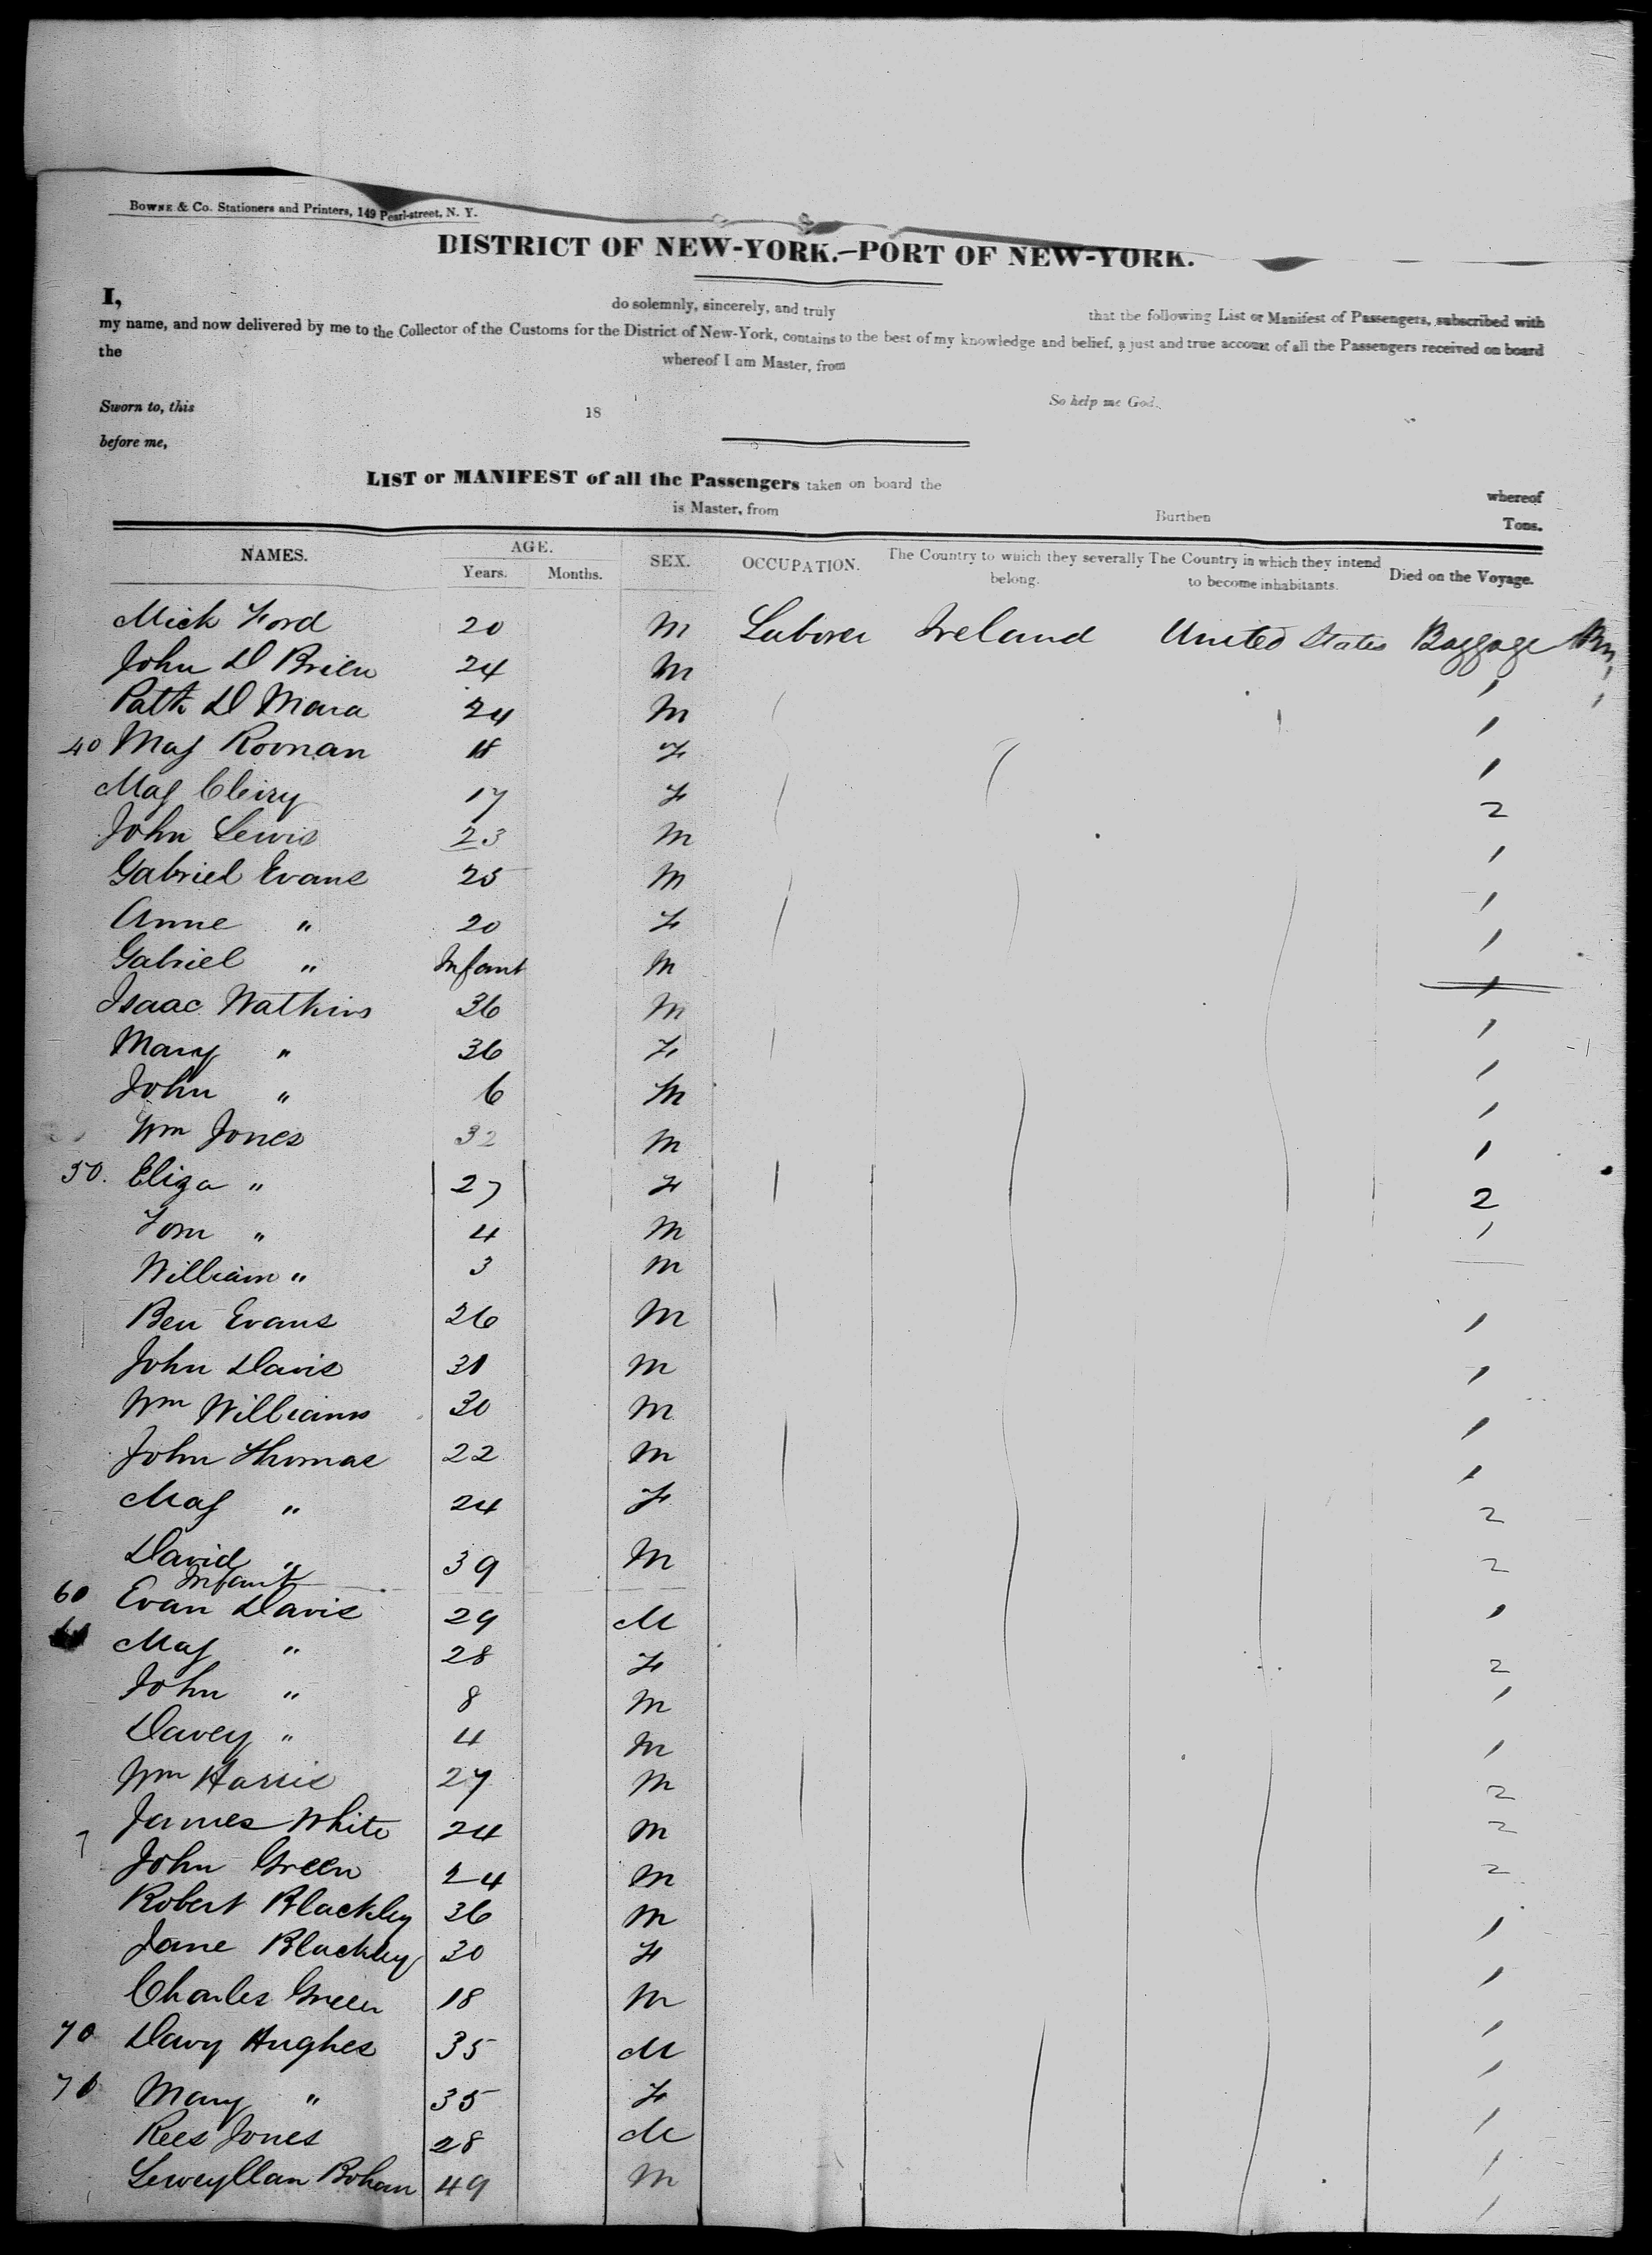 BOWNE & Co. Stationers and Printers, 149 Pearl-street, N. Y.
DISTRICT OF NEW-YORK.—PORT OF NEW-YORK.
I, do solemnly, sincerely, and truly that the following List or Manifest of Passengers, subscribed with
my name, and now delivered by me to the Collector of the Customs for the District of New-York, contains to the best of my knowledge and belief, a just and true account of all the Passengers received on board
the whereof I am Master, from
Sworn to, this 18 So help me God.
before me,
LIST or MANIFEST of all the Passengers taken on board the whereof
is Master, from Burthen Tons.
NAMES. AGE. SEX. OCCUPATION. The Country to which they severally belong. The Country in which they intend to become inhabitants. Died on the Voyage.
Years. Months.
Mick Ford 20 M Laborer Ireland United States Baggage
John O Brien 24 M 1
Patk O Mara 24 M 1
40 Mag Roonan 18 F 1
Mag Cleiry 17 F 2
John Lewis 23 M 1
Gabriel Evans 25 M 1
Anne " 20 F 1
Gabriel " Infant M 1
Isaac Watkins 36 M 1
Mary " 36 F 1
John " 6 M 1
Wm Jones 32 M 1
50. Eliza " 27 F 2
Tom " 4 M 1
William " 3 M
Ben Evans 26 M 1
John Davis 31 M 1
Wm Williams 30 M 1
John Thomas 22 M 1
Mag " 24 F 2
David " 39 M 2
Infant
60 Evan Davis 29 M 1
Mag " 28 F 2
John " 8 M 1
Davey " 4 M 1
Wm Harris 27 M 2
James White 24 M 2
John Green 24 M 2
Robert Blackley 36 M 1
Jane Blackley 30 F 1
Charles Green 18 M 1
70 Davy Hughes 35 M 1
71 Mary " 35 F 1
Rees Jones 28 M 1
Leweyllan Bohan 49 M 1